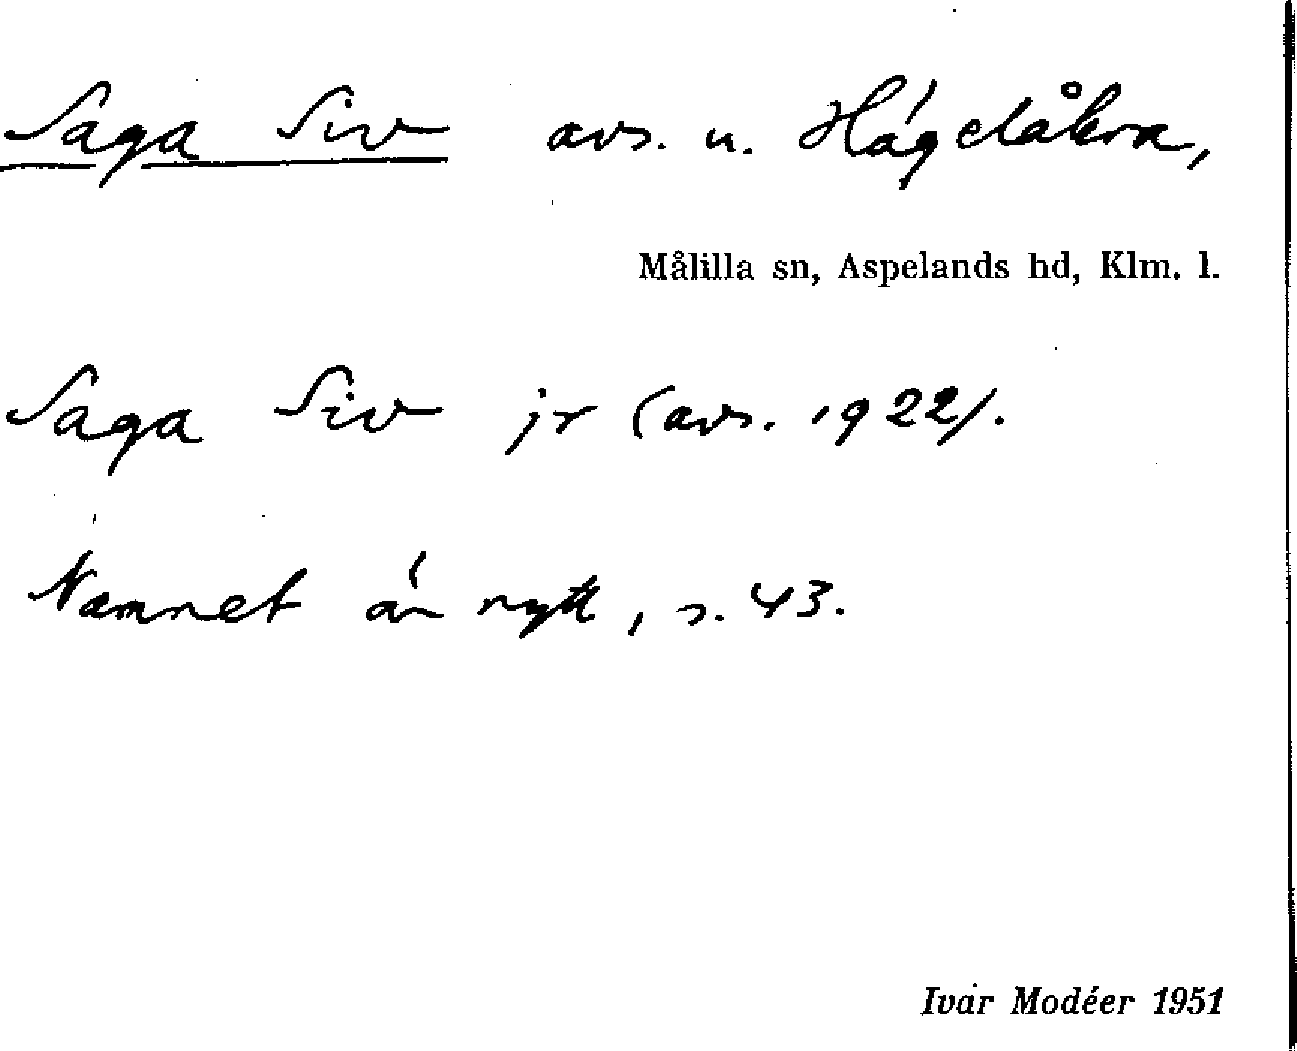 Saga Siv avs. u. Högelåkra,
Målilla sn, Aspelands hd, Klm. l.
Saga Siv jr (avs. 1922).
Namnet är nytt, s. 43.
Ivar Modéer 1951